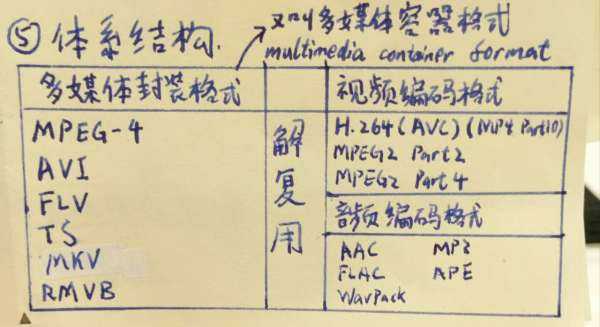 ⑤ 体系结构.
又叫多媒体容器格式
multimedia container format
多媒体封装格式
MPEG-4
AVI
FLV
TS
MKV
RMVB
解
复
用
视频编码格式
H.264(AVC)(MP4 Part10)
MPEG2 Part2
MPEG2 Part4
音频编码格式
AAC MP3
FLAC APE
WavPack